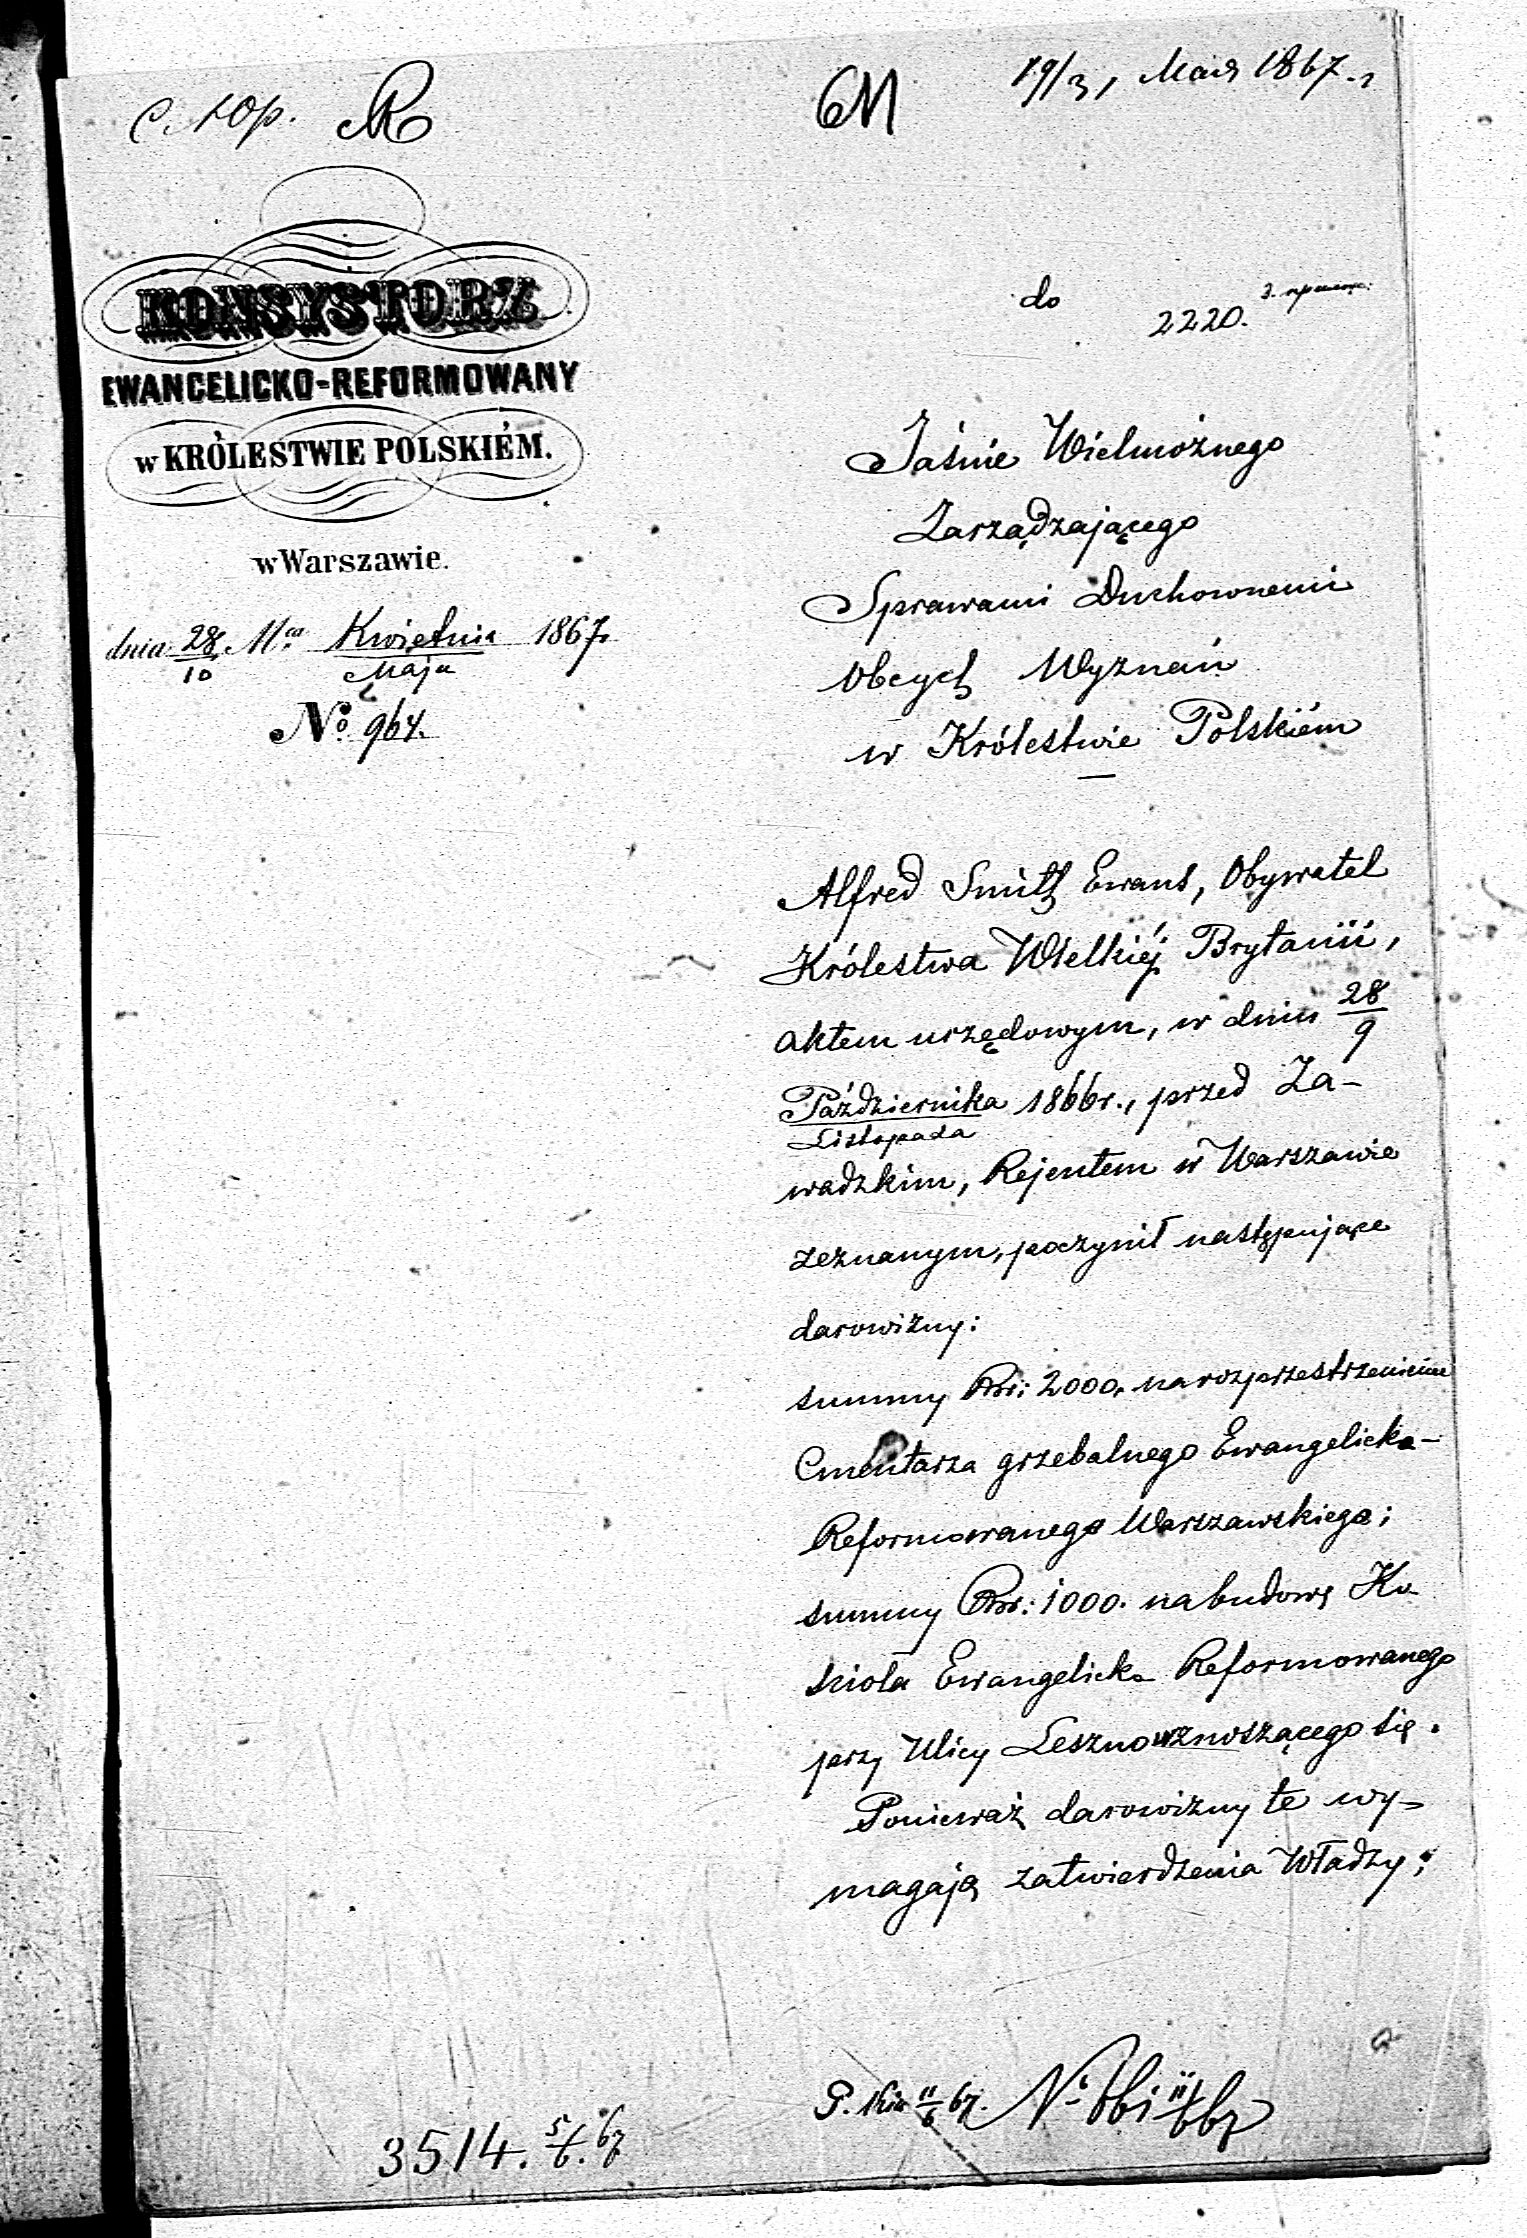 19/31 Мая 1867.
KONSYSTORZ
EWANGELICKO-REFORMOWANY
w KRÓLESTWIE POLSKIÉM.
w Warszawie.
dnia 28/10 Mca Kwietnia/Maja 1867.
No 964.
do
2220.
Jaśnie Wielmożnego
Zarządzającego
Sprawami Duchownemi
Obcych Wyznań
w Królestwie Polskiém
Alfred Smith Ewans, Obywatel
Królestwa Wielkiéj Brytanii,
aktem urzędowym, w dniu 28/9
Października/Listopada 1866r., przed Za-
wadzkim, Rejentem w Warszawie
zeznanym, poczynił następujące
darowizny:
summy Rsr: 2000, na rozprzestrzenienie
Cmentarza grzebalnego Ewangelicko-
Reformowanego Warszawskiego;
summy Rsr: 1000. na budowę Ko-
ścioła Ewangelicko Reformowanego
przy Ulicy Leszno wznoszącego się.
Ponieważ darowizny te wy-
magają zatwierdzenia Władzy;
3514. 5/6. 67
11/6 67.